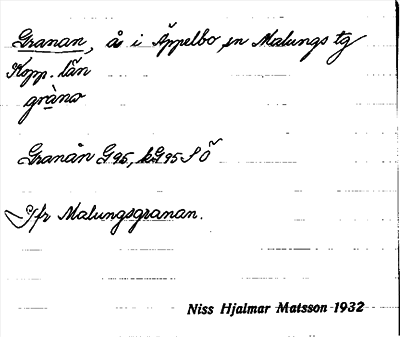 Granan, å i Äppelbo sn Malungs tg
Kopp. län
gràna
Granån G 96, kG 95 S Ö
Jfr Malungsgranan.
Niss Hjalmar Matsson 1932